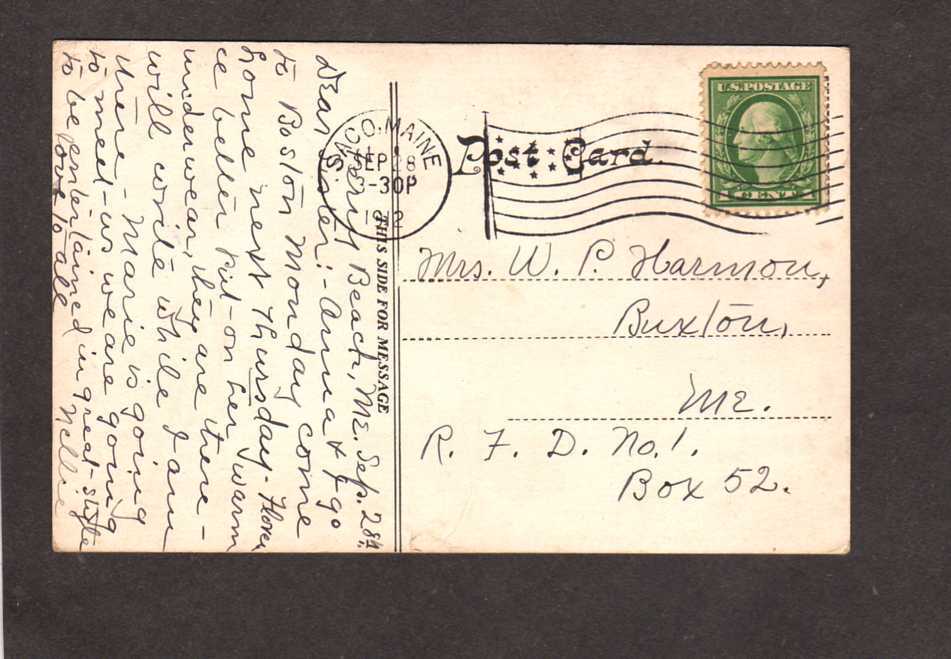 Ferry Beach, Me. Sep. 28th.
Dear Sister:- Anna & I go
to Boston Monday come
home next Thursday - Floren
ce better put-on her warm
underwear, they are there -
will write while I am
there - Marie is going
to meet-us we are going
to be entertained in great-style
Love to all Nellie
THIS SIDE FOR MESSAGE
SACO, MAINE
SEP 28
-30P
Post Card.
U.S. POSTAGE
1 CENT 1
Mrs. W. P. Harmon,
Buxton,
Me.
R. F. D. No. 1.
Box 52.